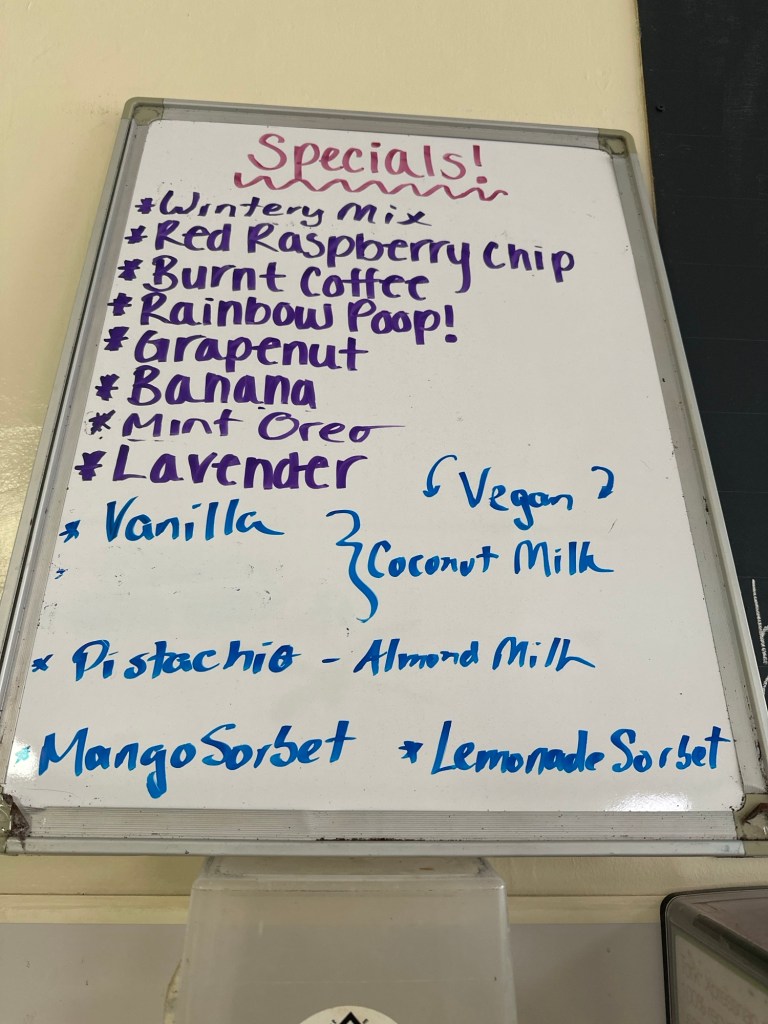 Specials!
* Wintery Mix
* Red Raspberry Chip
* Burnt Coffee
* Rainbow Poop!
* Grapenut
* Banana
* Mint Oreo
* Lavender
Vegan
* Vanilla } Coconut Milk
* Pistachio - Almond Milk
* Mango Sorbet * Lemonade Sorbet